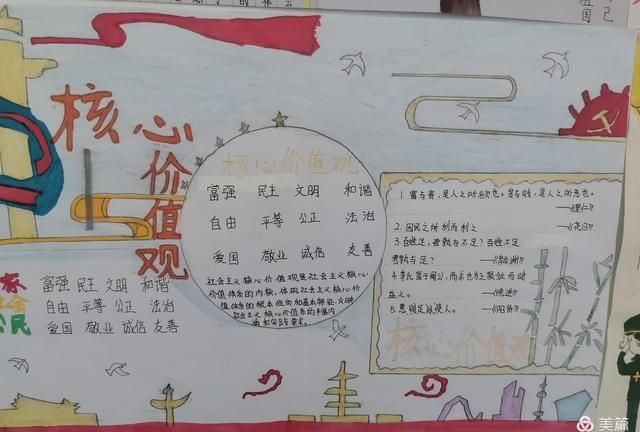 核心
价值观
核心价值观
富强 民主 文明 和谐
自由 平等 公正 法治
爱国 敬业 诚信 友善
社会主义核心价值观是社会主义核心
价值体系的内核，体现社会主义核心价
值体系的根本性质和基本特征，反映
社会主义核心价值体系的丰富内
涵和实践要求。
家
社会
公民
富强 民主 文明 和谐
自由 平等 公正 法治
爱国 敬业 诚信 友善
1. 富与贵，是人之所欲也。贫与贱，是人之所恶也。
——《里仁》
2. 因民之所利而利之
——《尧曰》
3. 百姓足，君孰与不足？百姓不足
君孰与足？
4. 季氏富于周公，而求也为之聚敛而附
益之。——《先进》
5. 惠则足以使人。——《阳货》
核心价值观
美篇